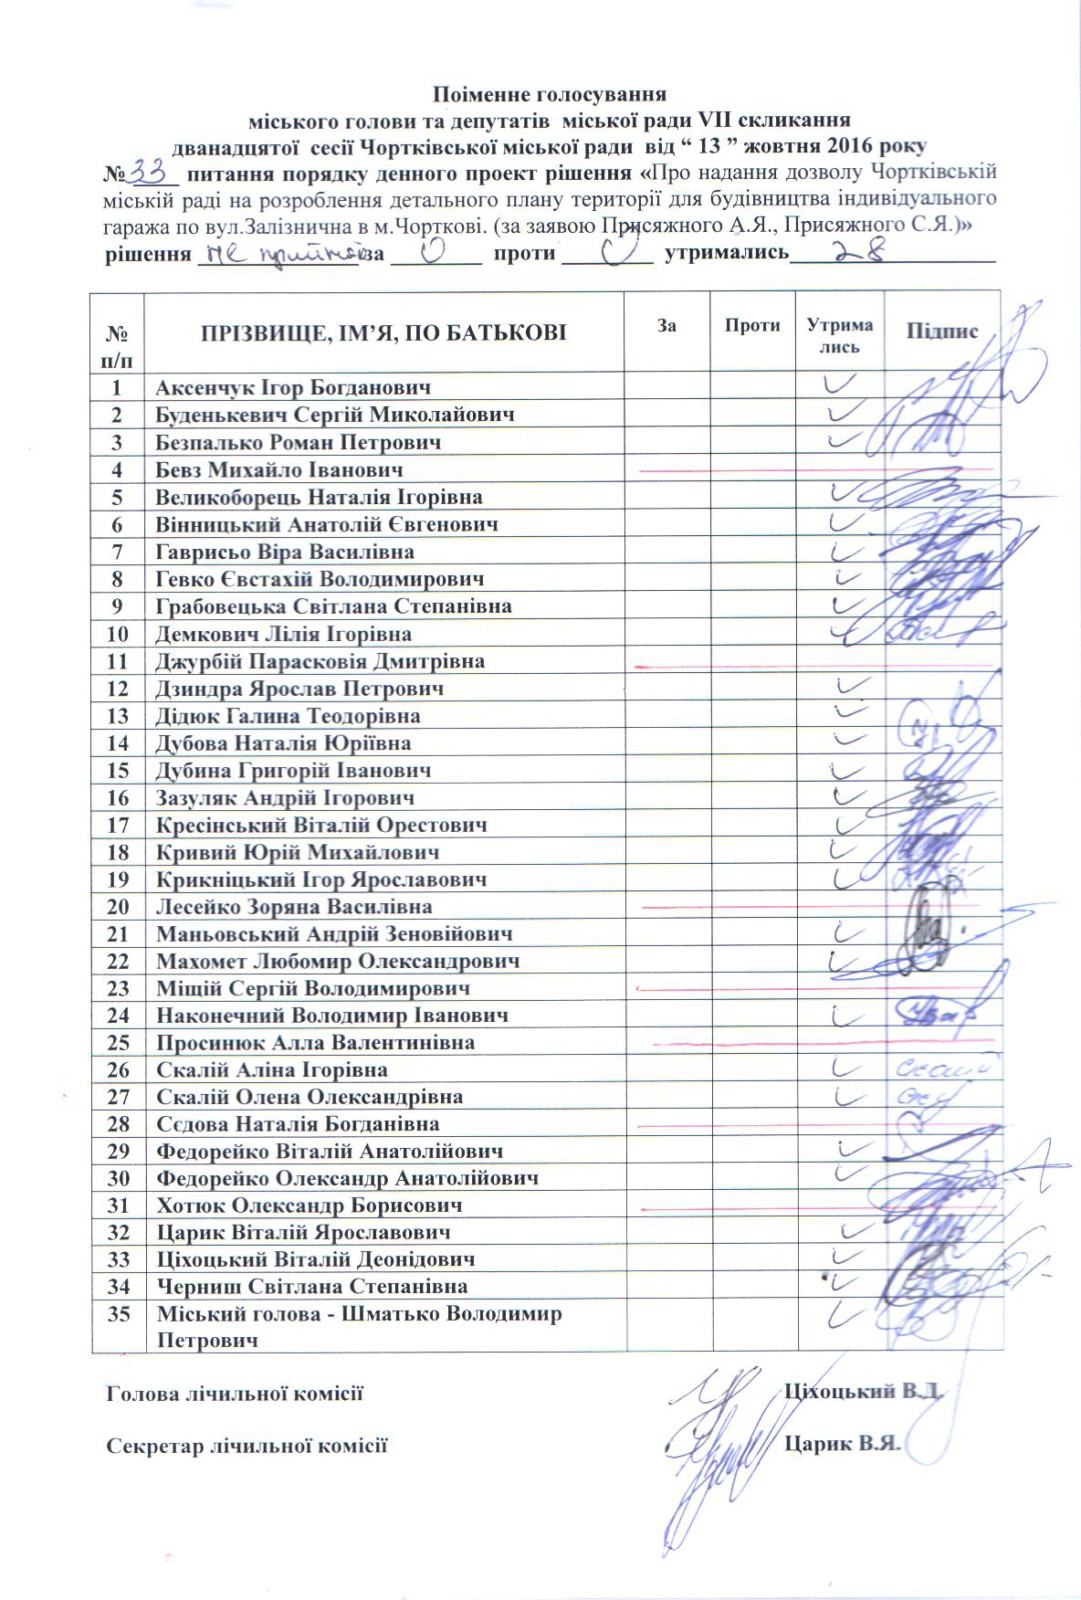 Поіменне голосування
міського голови та депутатів міської ради VII скликання
дванадцятої сесії Чортківської міської ради від “ 13 ” жовтня 2016 року
№ 33 питання порядку денного проект рішення «Про надання дозволу Чортківській
міській раді на розроблення детального плану території для будівництва індивідуального
гаража по вул.Залізнична в м.Чорткові. (за заявою Присяжного А.Я., Присяжного С.Я.)»
рішення не прийнято за 0 проти 0 утримались 28
№ п/п ПРІЗВИЩЕ, ІМ’Я, ПО БАТЬКОВІ За Проти Утрима лись Підпис
1 Аксенчук Ігор Богданович
2 Буденькевич Сергій Миколайович
3 Безпалько Роман Петрович
4 Бевз Михайло Іванович
5 Великоборець Наталія Ігорівна
6 Вінницький Анатолій Євгенович
7 Гаврисьо Віра Василівна
8 Гевко Євстахій Володимирович
9 Грабовецька Світлана Степанівна
10 Демкович Лілія Ігорівна
11 Джурбій Парасковія Дмитрівна
12 Дзиндра Ярослав Петрович
13 Дідюк Галина Теодорівна
14 Дубова Наталія Юріївна
15 Дубина Григорій Іванович
16 Зазуляк Андрій Ігорович
17 Кресінський Віталій Орестович
18 Кривий Юрій Михайлович
19 Крикніцький Ігор Ярославович
20 Лесейко Зоряна Василівна
21 Маньовський Андрій Зеновійович
22 Махомет Любомир Олександрович
23 Міщій Сергій Володимирович
24 Наконечний Володимир Іванович
25 Просинюк Алла Валентинівна
26 Скалій Аліна Ігорівна
27 Скалій Олена Олександрівна
28 Сєдова Наталія Богданівна
29 Федорейко Віталій Анатолійович
30 Федорейко Олександр Анатолійович
31 Хотюк Олександр Борисович
32 Царик Віталій Ярославович
33 Ціхоцький Віталій Деонідович
34 Черниш Світлана Степанівна
35 Міський голова - Шматько Володимир
Петрович
Голова лічильної комісії Ціхоцький В.Д.
Секретар лічильної комісії Царик В.Я.